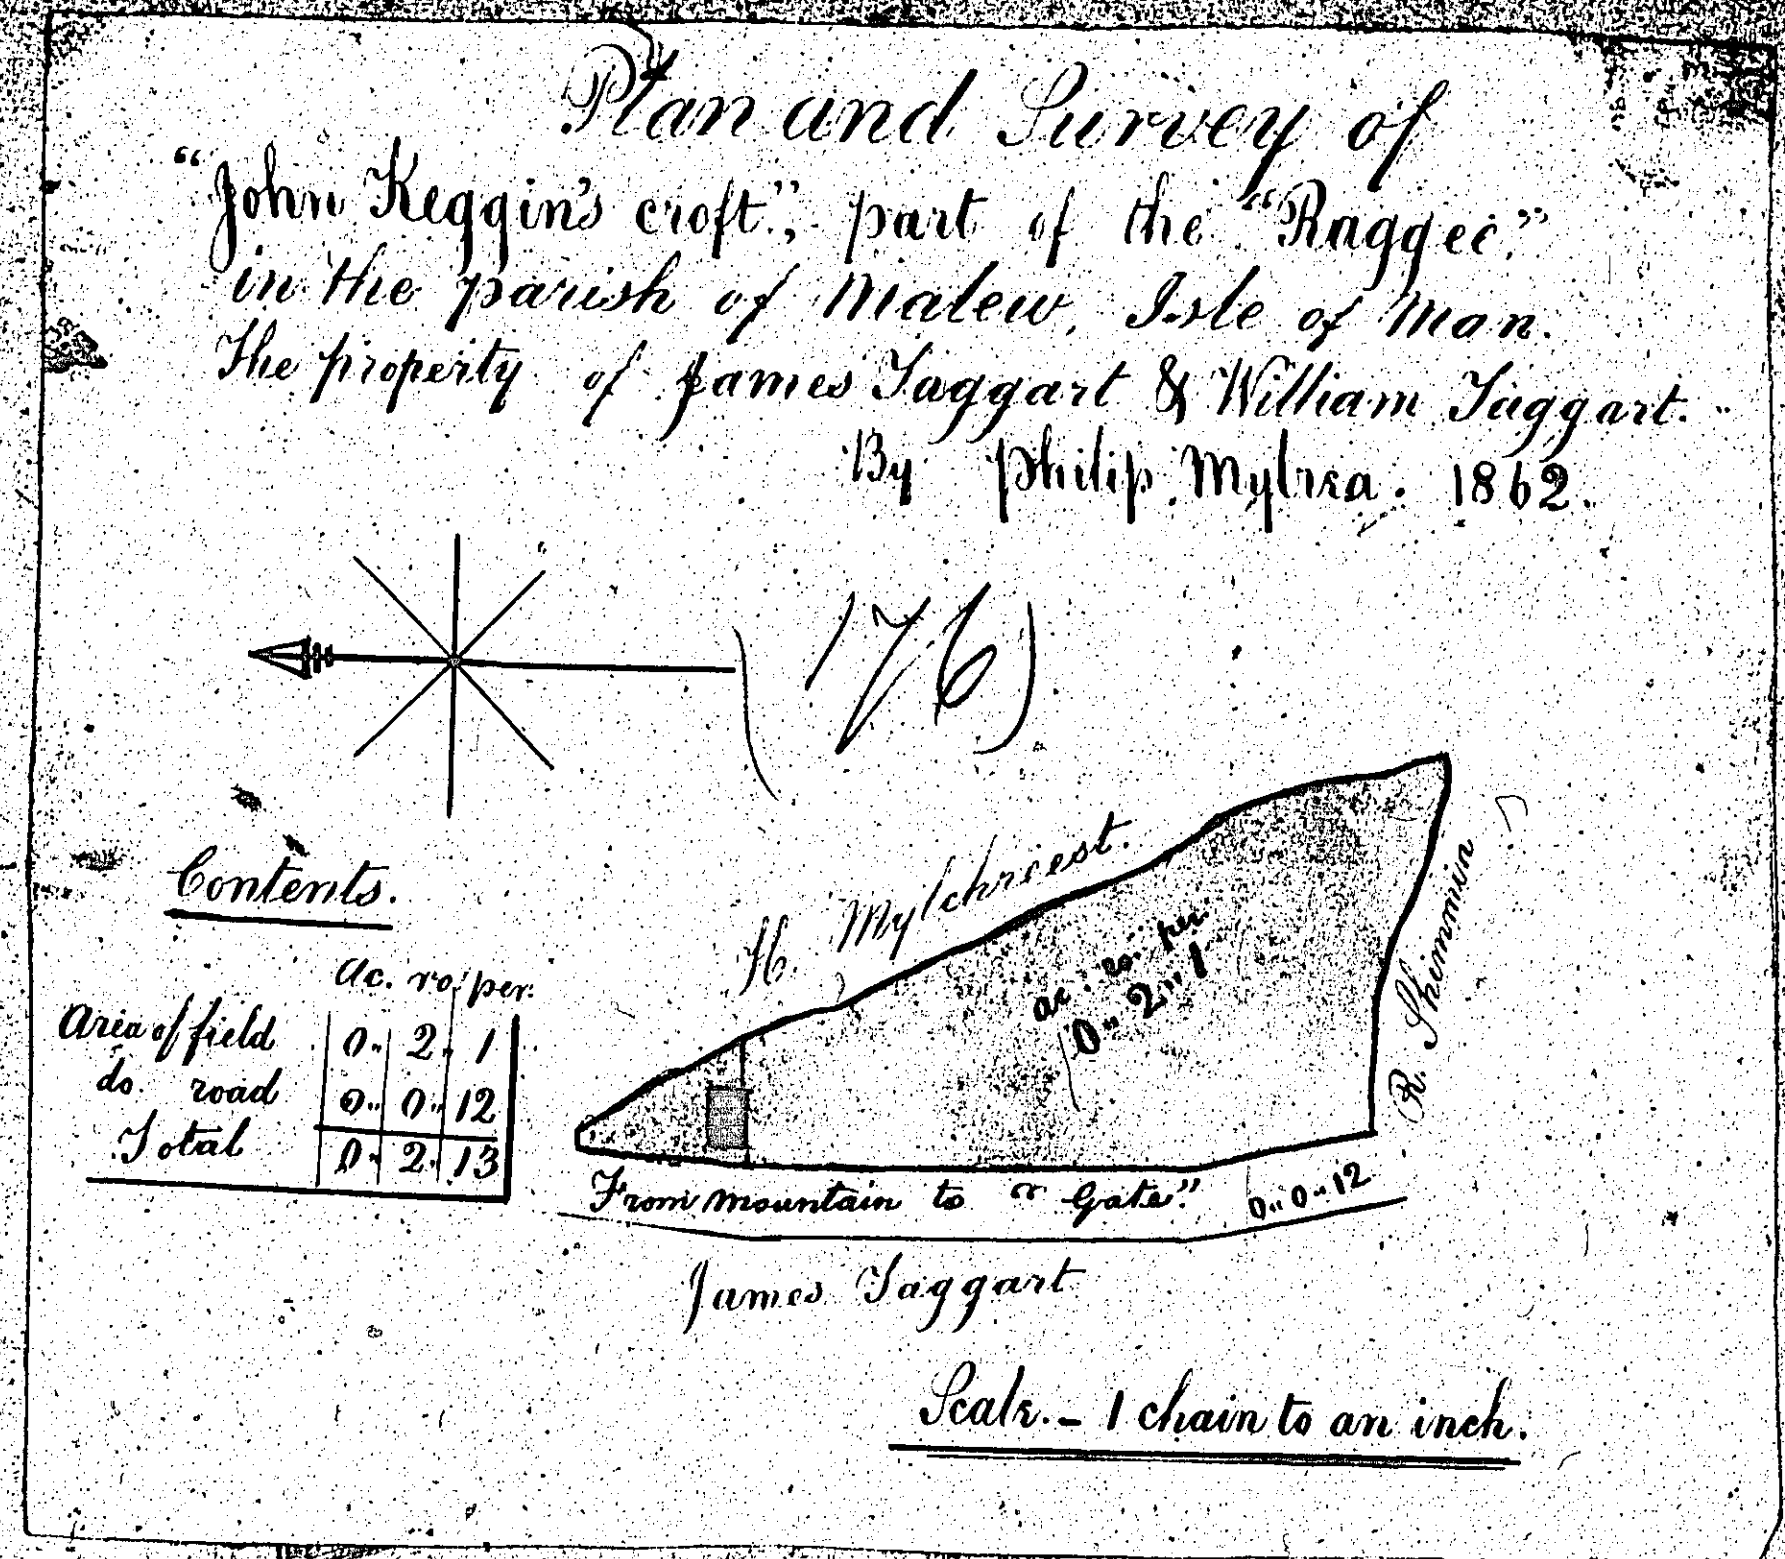 Plan and Survey of
"John Keggin's croft", part of the "Raggec."
in the parish of Malew, Isle of Man.
The property of James Taggart & William Taggart.
By Philip Mylrea. 1862.
(176)
Contents.
Ac. ro. per.
Area of field 0 " 2 " 1
do. road 0 " 0 " 12
Total 0 " 2 " 13
H. Mylchreest.
ac. ro. per.
0 " 2 " 1
R. Shimmin
From mountain to " Gate."
0 " 0 " 12
James Taggart
Scale. - 1 chain to an inch.